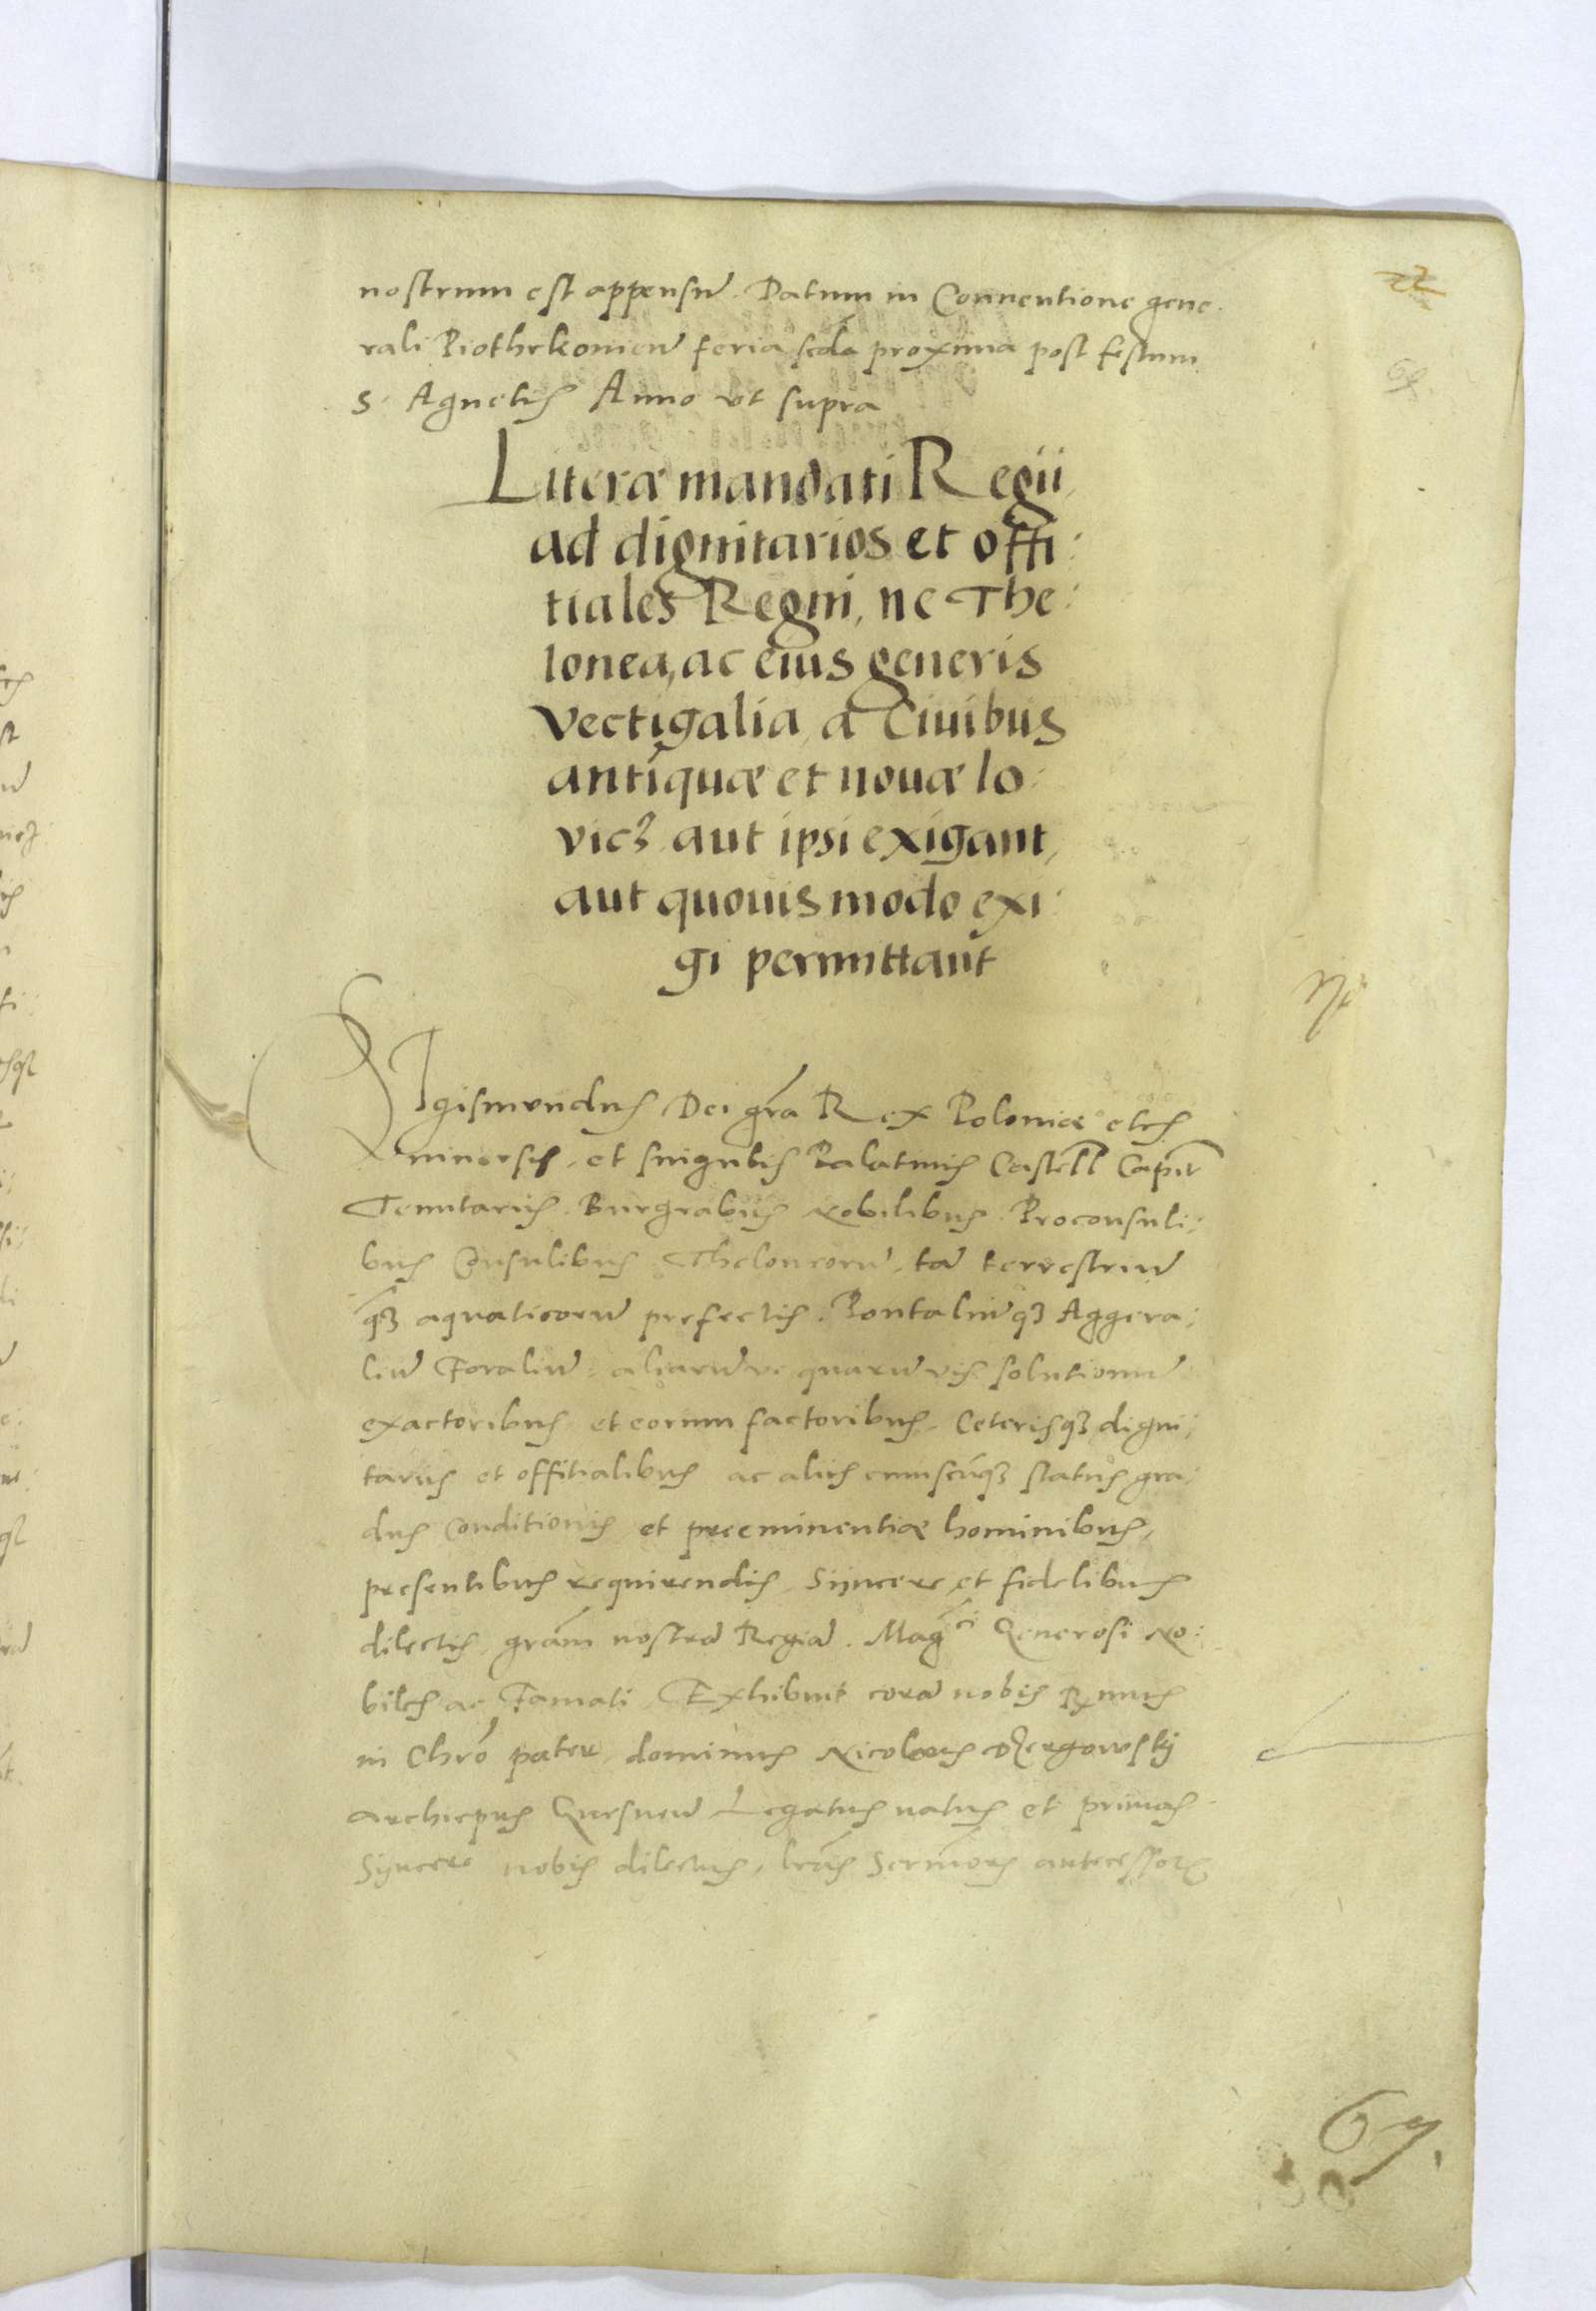 nostrum est appensũ. Datum in Conuentione gene.
rali Piothrkonien̄ feria scda proxima post festum
S. Agnetis Anno vt supra
Literæ mandati Regii,
ad dignitarios et offi:
tiales Regni, ne The:
lonea, ac eius generis
Vectigalia, a Ciuibus
antiquæ et nouæ lo:
vicz aut ipsi exigant,
aut quouis modo exi:
gi permittant
SIgismundus Dei grā Rex Poloniæ etcs
Vniuersis, et singulis Palatinis Castell Capit
Tenutariis. Burgrabiis Nobilibus. Proconsuli:
bus Consulibus Theloneorũ, tã terrestriũ
qz̃ aquaticorũ prefectis. Pontaliũqz Aggera:
liũ Foraliũ, aliarũve quarũvis solutionũ
exactoribus et eorum factoribus. Ceterisqz digni:
tariis et offitialibus ac aliis cuiuscũqz status gra:
dus Conditionis et preeminentiæ hominibus,
presentibus requirendis, Syncere et fidelibus
dilectis, grām nostrã Regiã. Magci Generosi No:
biles ac Famati. Exhibuit corã nobis Rmus
in Chro pater, dominus Nicolaus Dzergowskij
Archiepus Gnesneñ Legatus natus et primas
Syncere nobis dilectus, lrās Sermorũ antecessor
22
69.